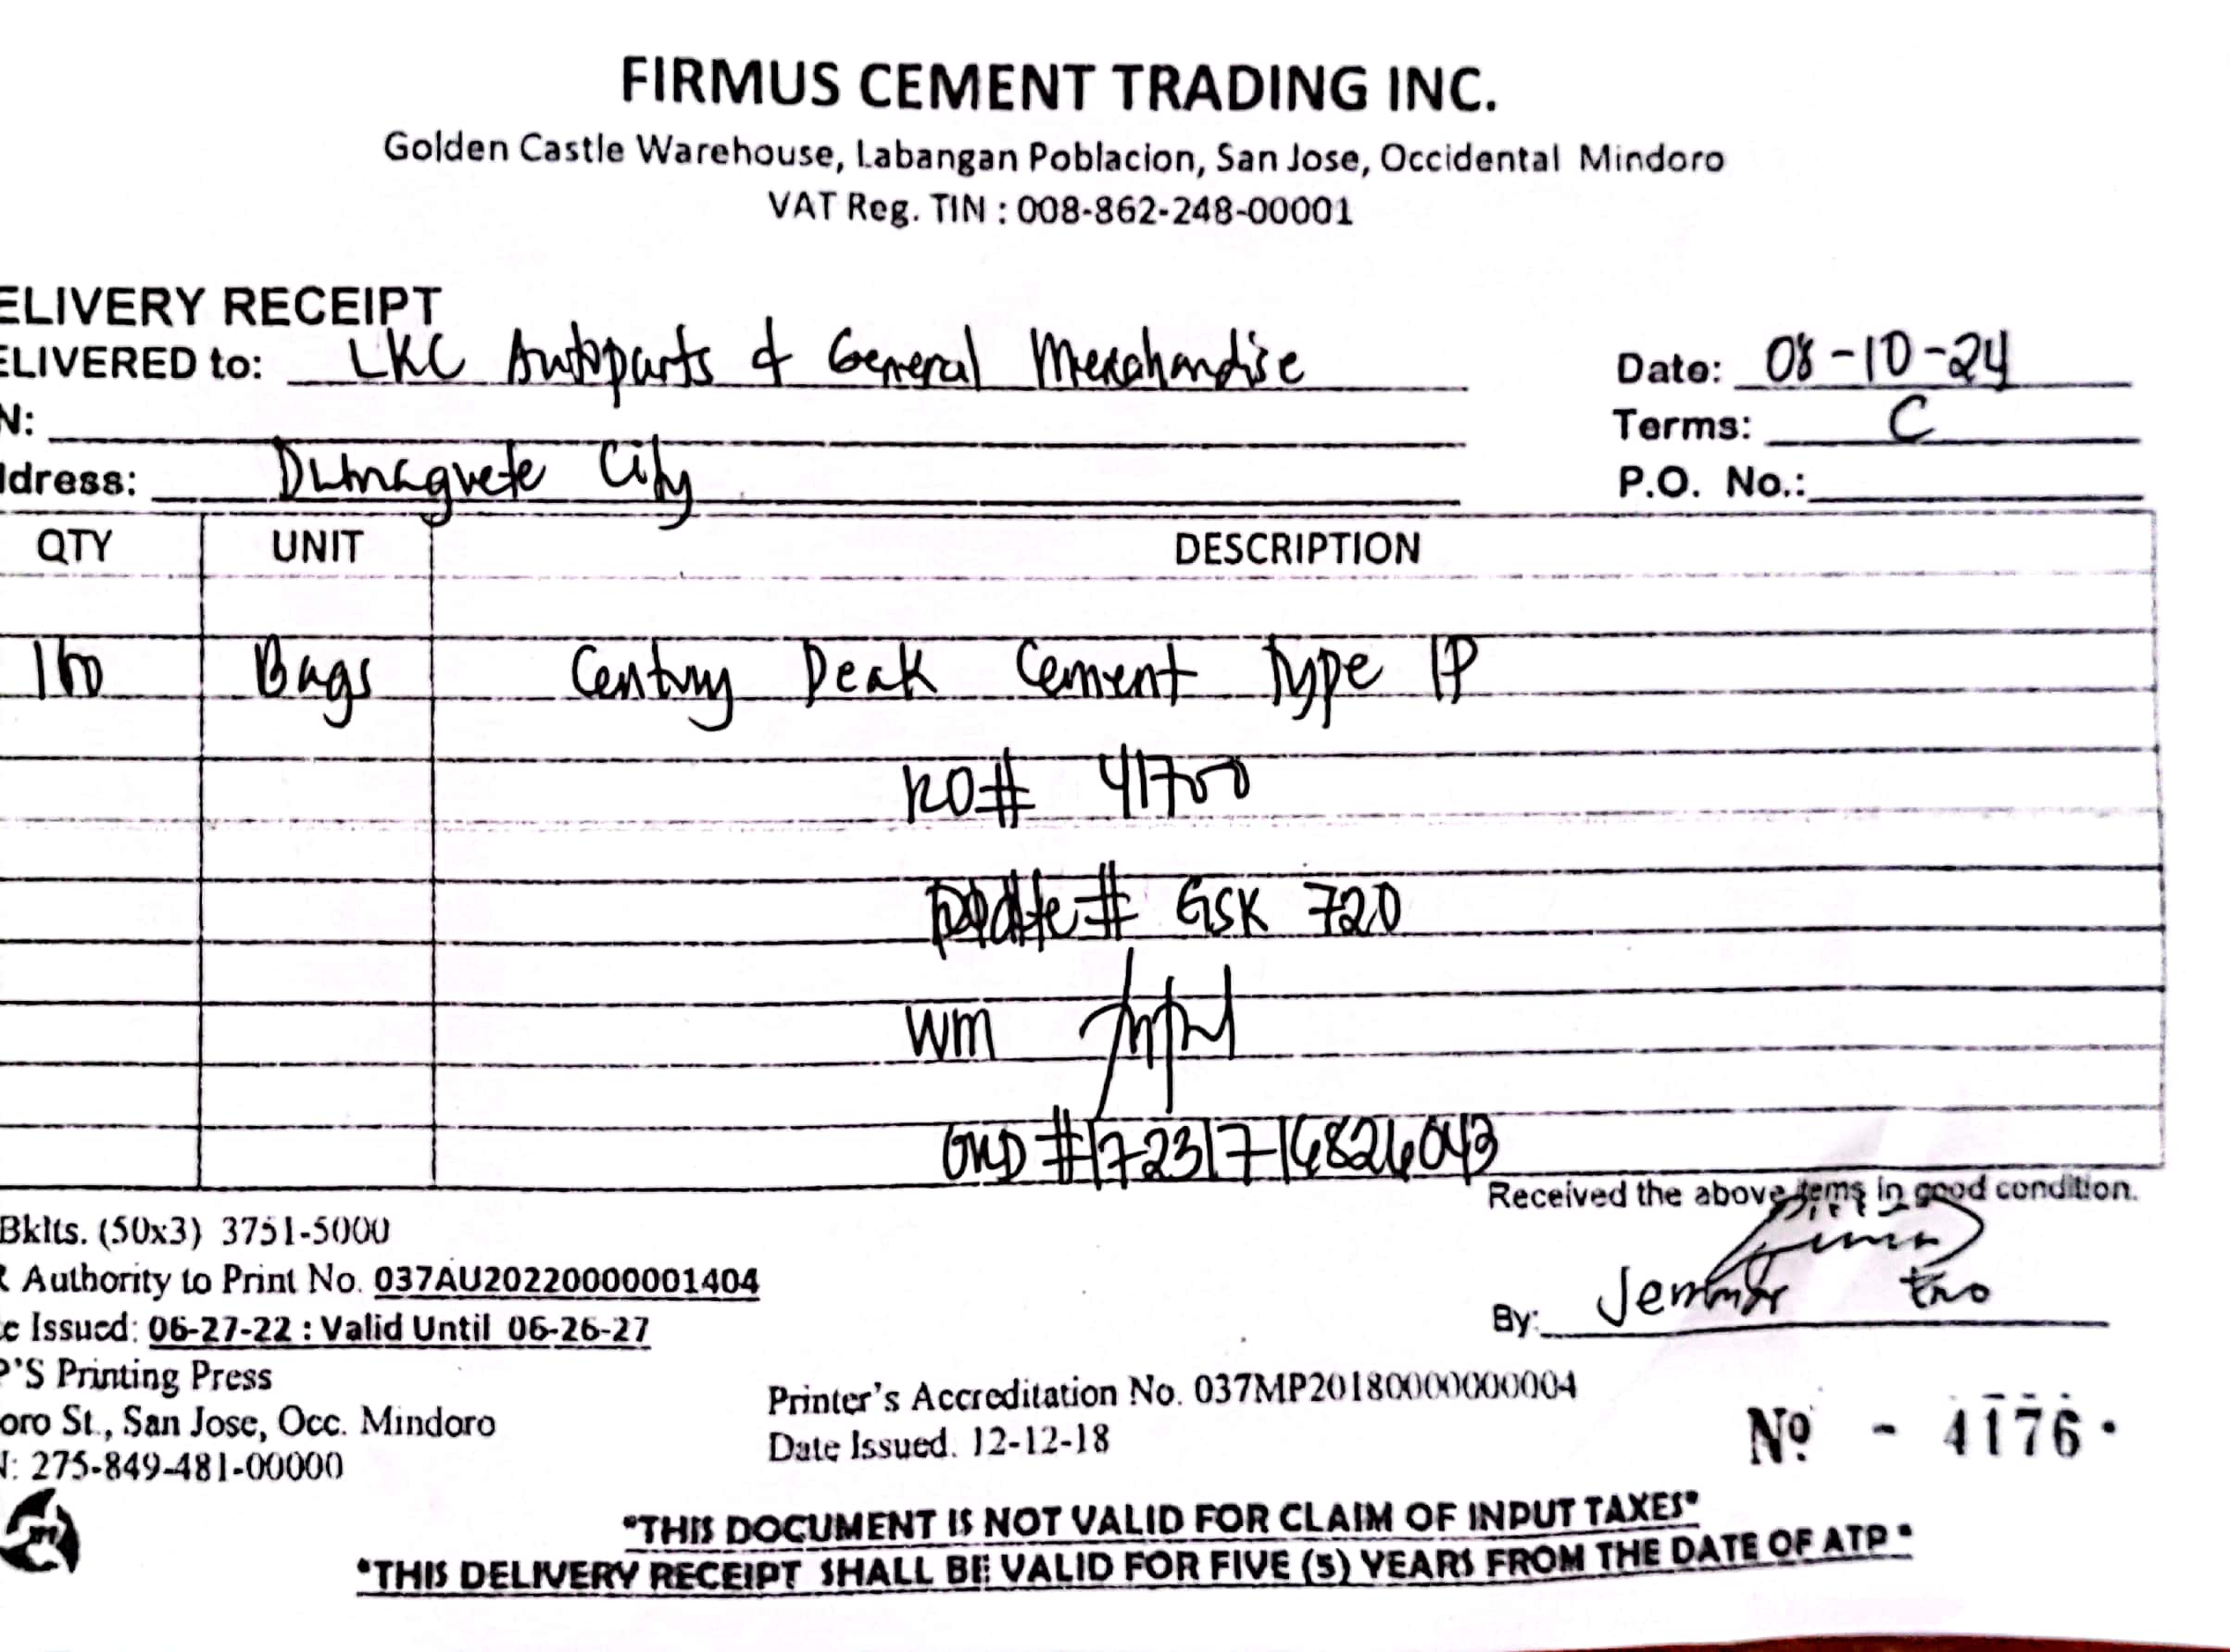 FIRMUS CEMENT TRADING INC.
Golden Castle Warehouse, Labangan Poblacion, San Jose, Occidental Mindoro
VAT Reg. TIN : 008-862-248-00001
ELIVERY RECEIPT
ELIVERED to: LKC Autoparts & General Merchandise Date: 08-10-24
N: Terms: C
ldress: Dumaguete City P.O. No.:
QTY UNIT DESCRIPTION
Bags Century Peak Cement Type 1P
# 41700
# GSK 720
WM
#172317-16826043
Received the above items in good condition.
Bklts. (50x3) 3751-5000
R Authority to Print No. 037AU20220000001404
te Issued: 06-27-22 : Valid Until 06-26-27
By:
P'S Printing Press
oro St., San Jose, Occ. Mindoro
N: 275-849-481-00000
Printer's Accreditation No. 037MP20180000000004
Date Issued. 12-12-18
Nº - 4176
"THIS DOCUMENT IS NOT VALID FOR CLAIM OF INPUT TAXES"
"THIS DELIVERY RECEIPT SHALL BE VALID FOR FIVE (5) YEARS FROM THE DATE OF ATP "